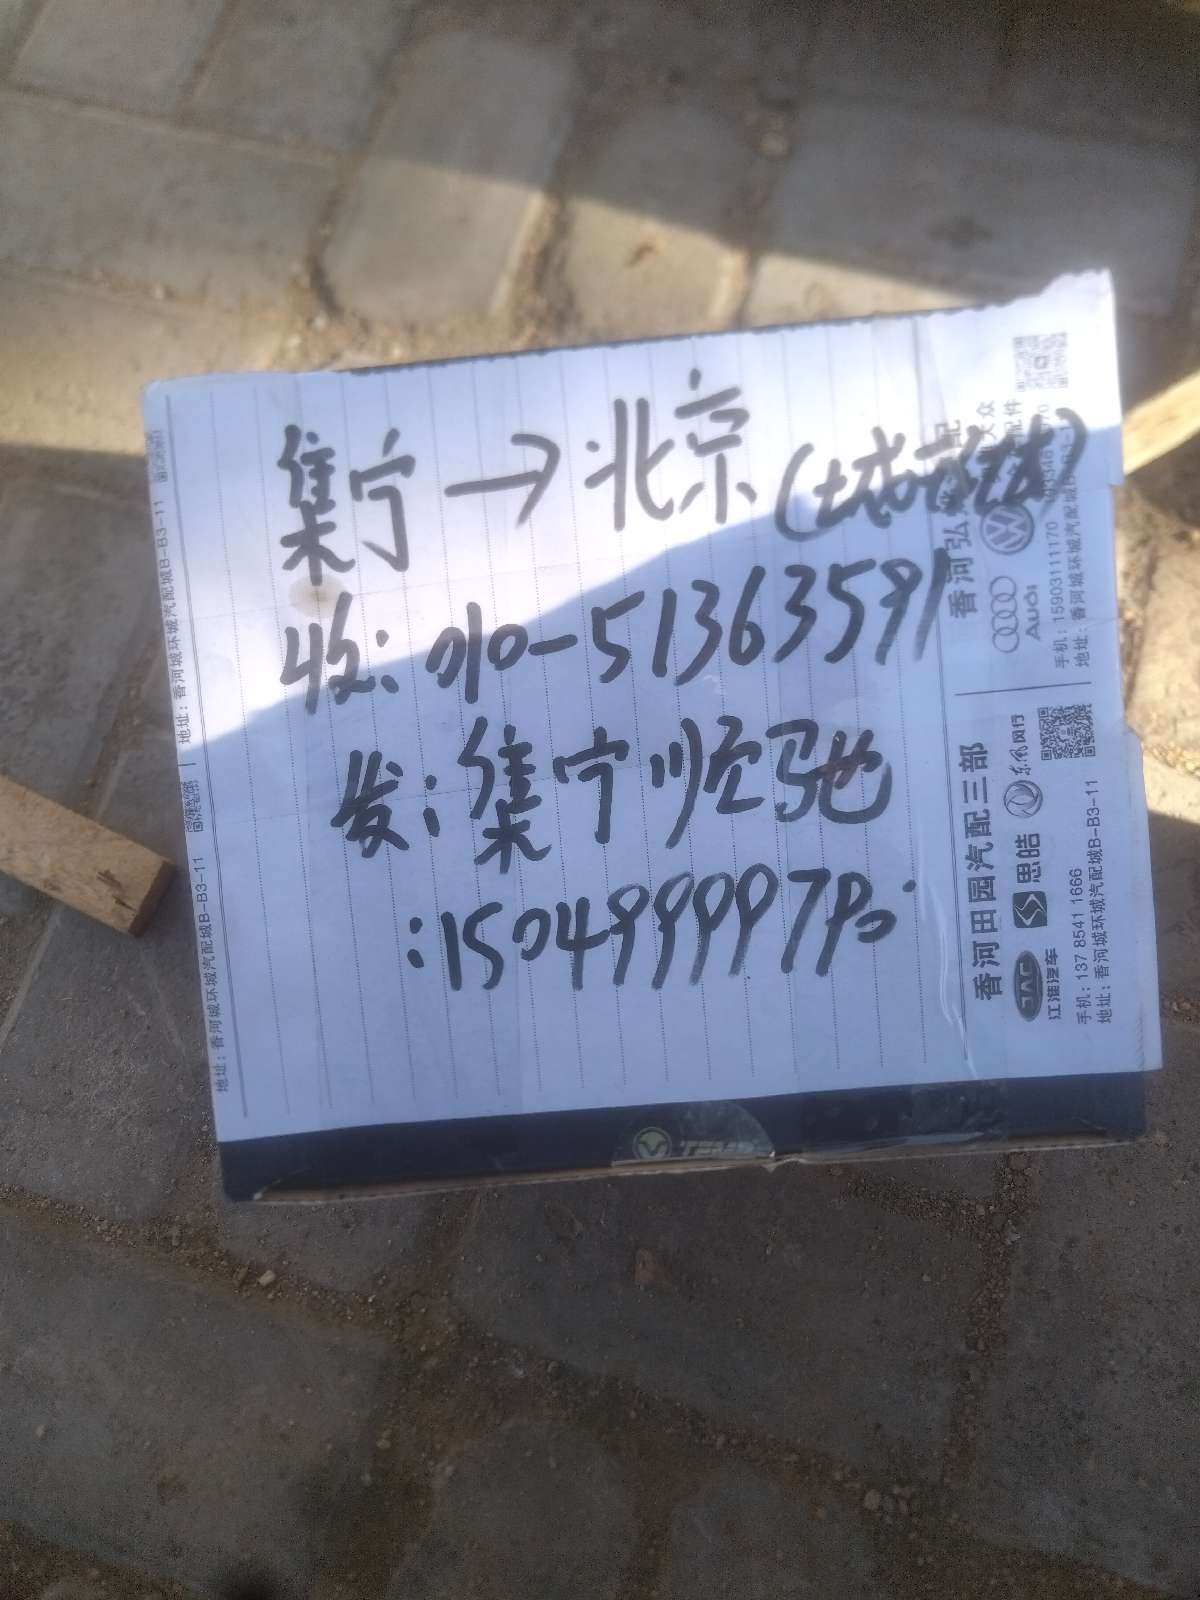 集宁→北京
收:010-51363591
发:集宁顺驰
:150499997
香河弘
Audi
手机:15903111170
地址:香河城环城汽配城B-B3-11
香河田园汽配三部
JAC 思皓 东风风行
江淮汽车
手机:137 8541 1666
地址:香河城环城汽配城B-B3-11
地址:香河城环城汽配城B-B3-11
地址:香河城环城汽配城B-B3-11